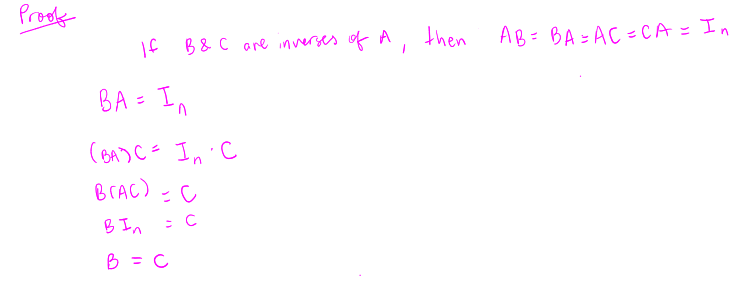 Proof
If B & C are inverses of A, then AB = BA = AC = CA = Iₙ
BA = Iₙ
(BA)C = Iₙ · C
B(AC) = C
BIₙ = C
B = C